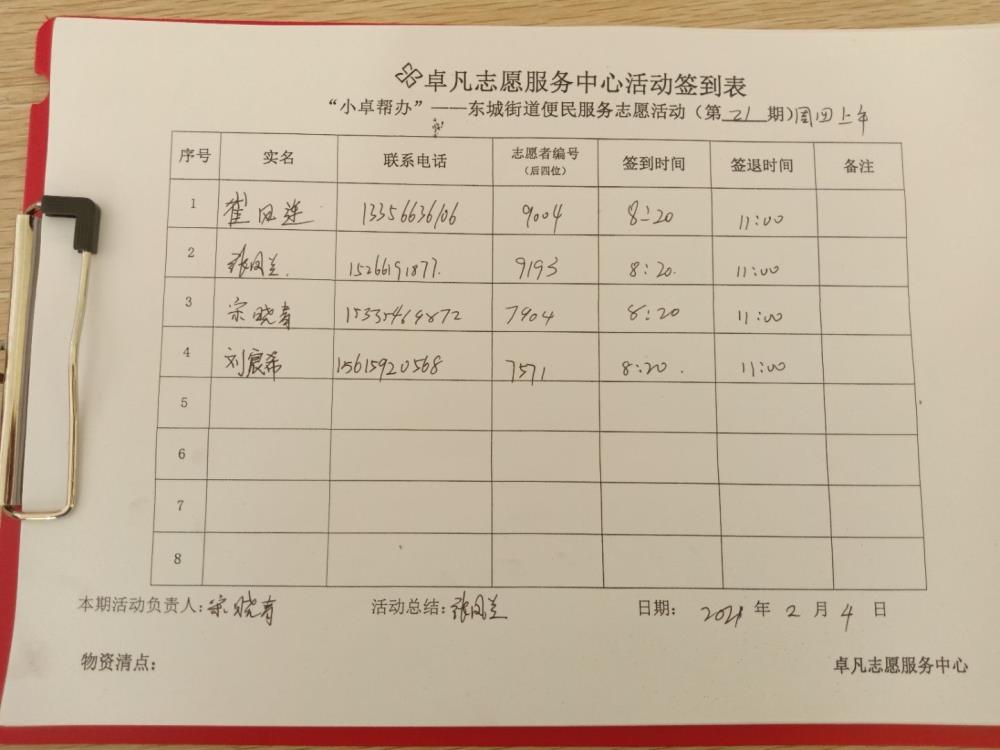 卓凡志愿服务中心活动签到表
“小卓帮办”——东城街道便民服务志愿活动（第21期）周四上午
序号 实名 联系电话 志愿者编号（后四位） 签到时间 签退时间 备注
1 崔凤莲 13356636106 9004 8:20 11:00
2 张凤兰. 15266191877. 9193 8:20. 11:00
3 宋晓春 15335464872 7904 8:20 11:00
4 刘宸希 15615920568 7571 8:20. 11:00
5
6
7
8
本期活动负责人：宋晓春 活动总结：张凤兰 日期： 2021年2月4日
物资清点： 卓凡志愿服务中心